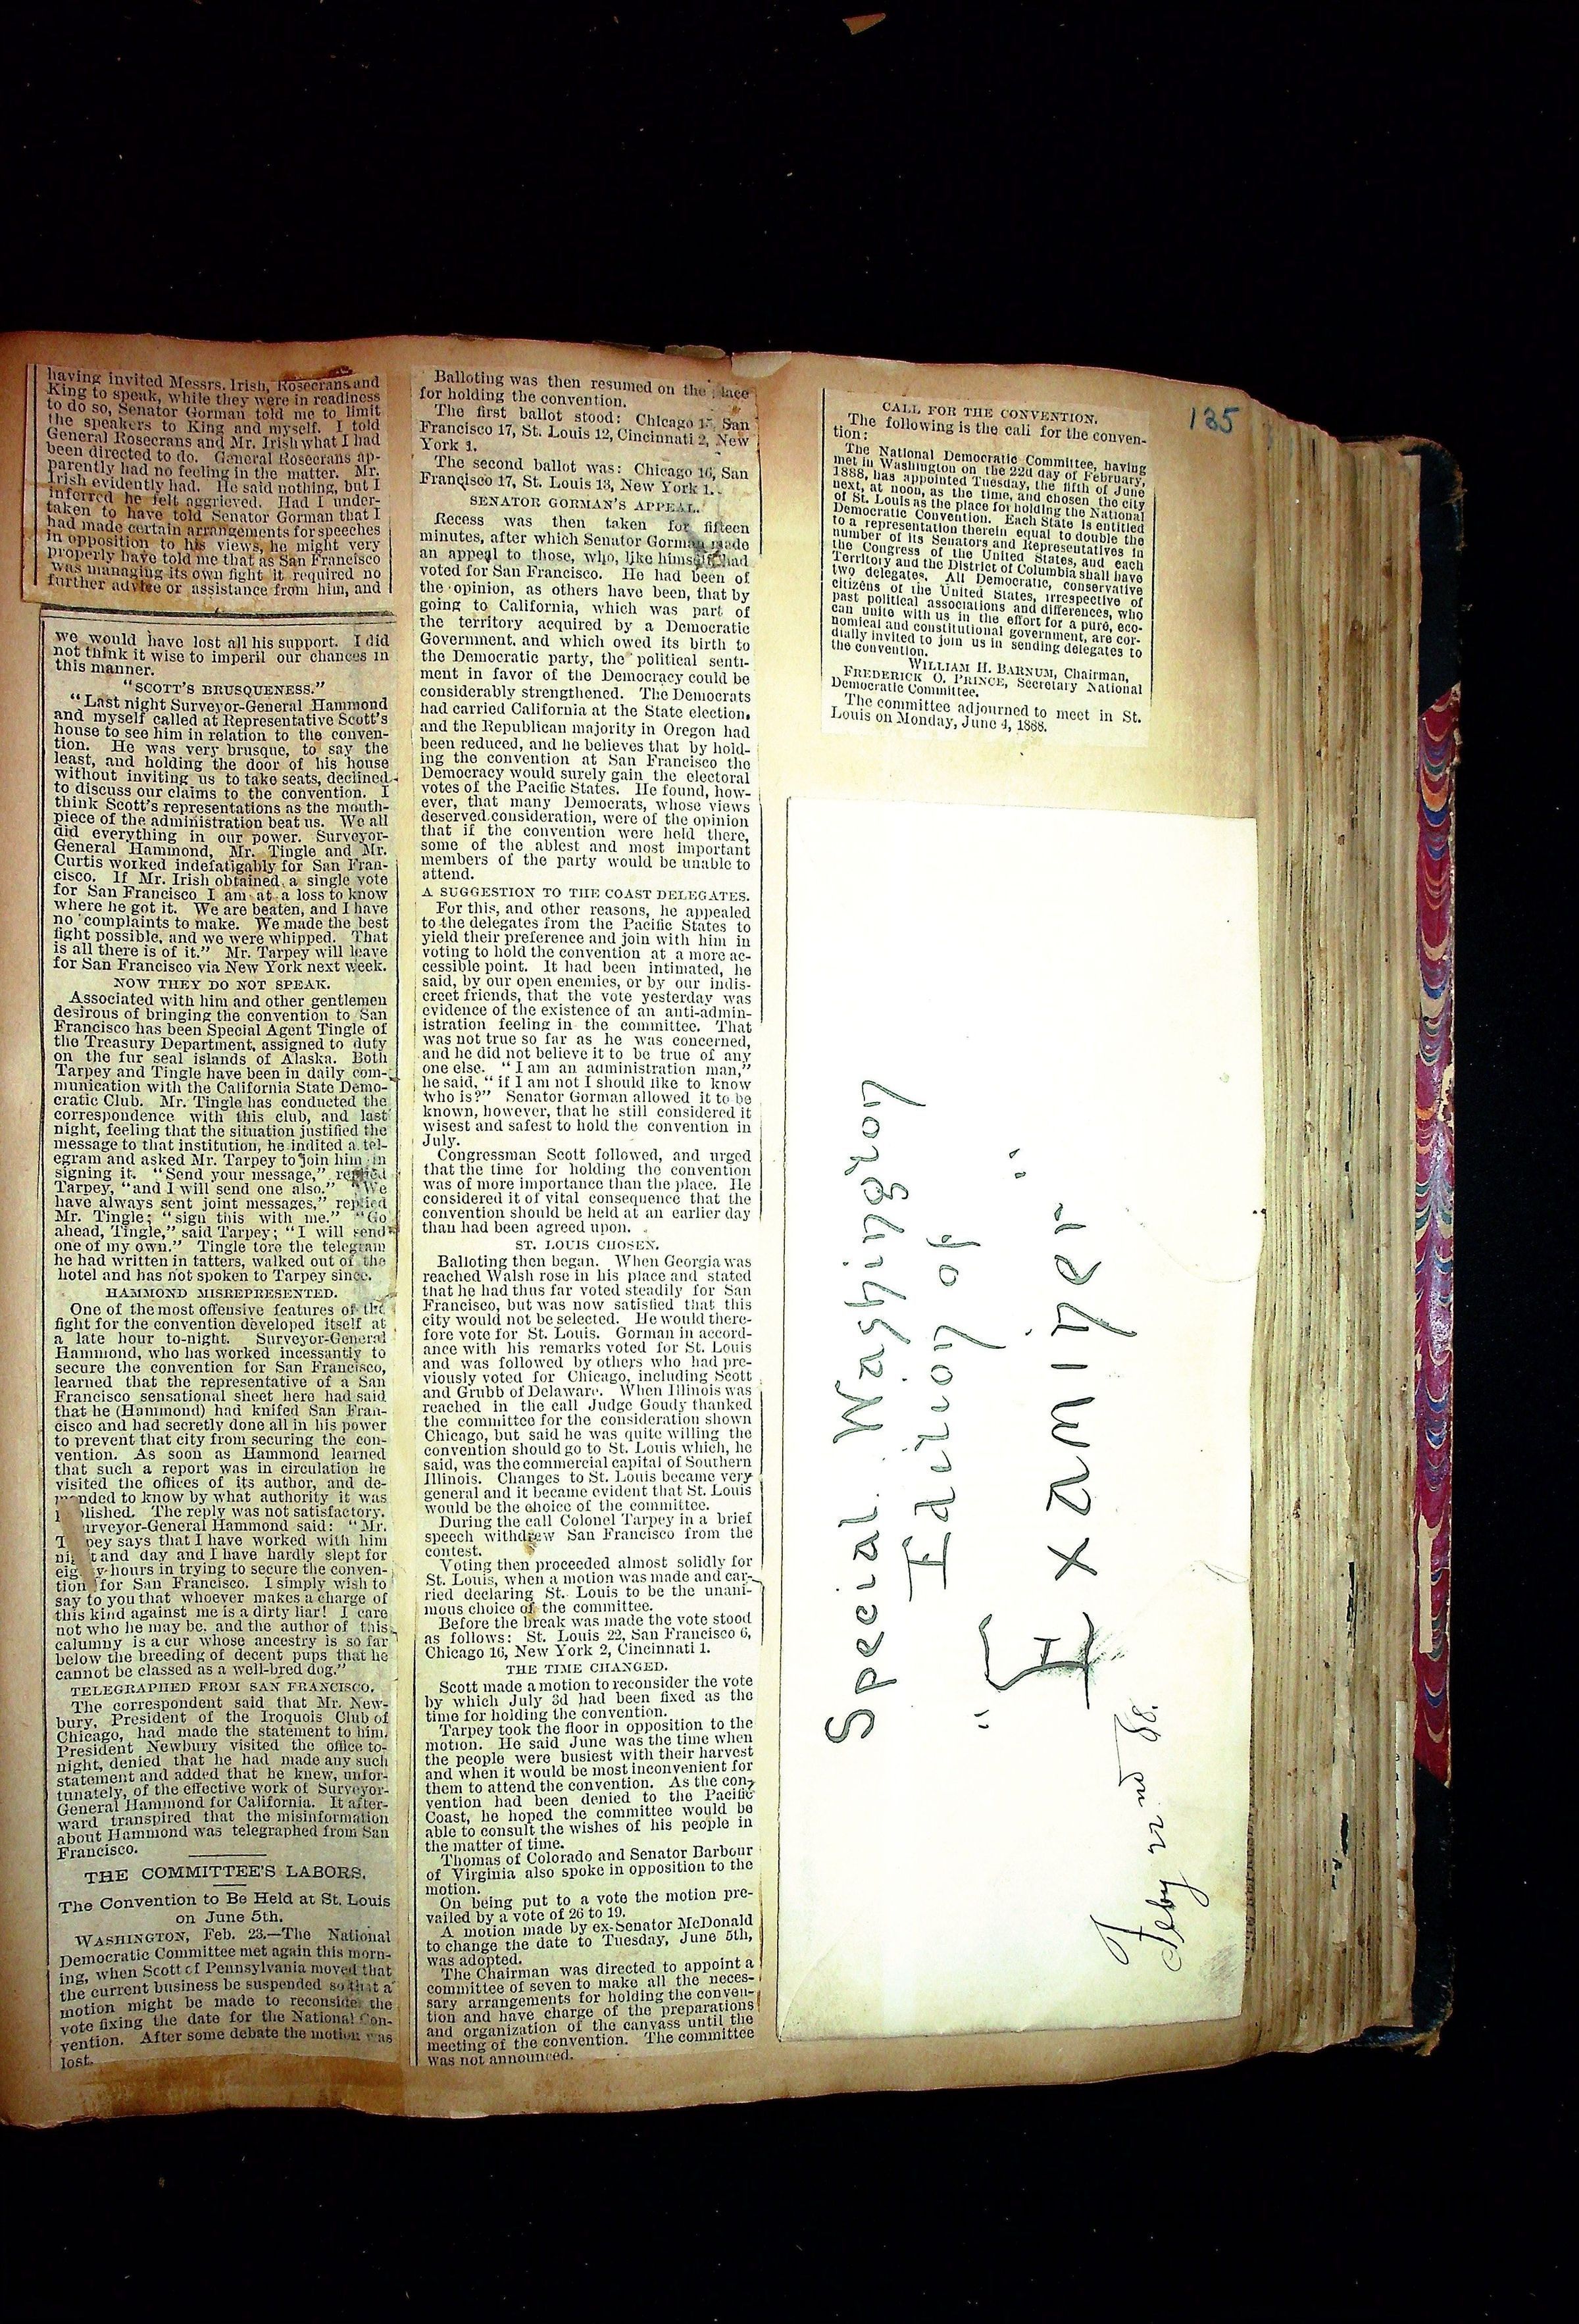 having invited Messrs. Irish, Rosecrans and
King to speak, while they were in readiness
to do so, Senator Gorman told me to limit
the speakers to King and myself. I told
General Rosecrans and Mr. Irish what I had
been directed to do. General Rosecrans ap-
parently had no feeling in the matter. Mr.
Irish evidently had. He said nothing, but I
inferred he felt aggrieved. Had I under-
taken to have told Senator Gorman that I
had made certain arrangements for speeches
in opposition to his views, he might very
properly have told me that as San Francisco
was managing its own fight it required no
further advice or assistance from him, and
we would have lost all his support. I did
not think it wise to imperil our chances in
this manner.
"SCOTT'S BRUSQUENESS."
"Last night Surveyor-General Hammond
and myself called at Representative Scott's
house to see him in relation to the conven-
tion. He was very brusque, to say the
least, and holding the door of his house
without inviting us to take seats, declined
to discuss our claims to the convention. I
think Scott's representations as the mouth-
piece of the administration beat us. We all
did everything in our power. Surveyor-
General Hammond, Mr. Tingle and Mr.
Curtis worked indefatigably for San Fran-
cisco. If Mr. Irish obtained a single vote
for San Francisco I am at a loss to know
where he got it. We are beaten, and I have
no complaints to make. We made the best
fight possible, and we were whipped. That
is all there is of it." Mr. Tarpey will leave
for San Francisco via New York next week.
NOW THEY DO NOT SPEAK.
Associated with him and other gentlemen
desirous of bringing the convention to San
Francisco has been Special Agent Tingle of
the Treasury Department, assigned to duty
on the fur seal islands of Alaska. Both
Tarpey and Tingle have been in daily com-
munication with the California State Demo-
cratic Club. Mr. Tingle has conducted the
correspondence with this club, and last
night, feeling that the situation justified the
message to that institution, he indited a tel-
egram and asked Mr. Tarpey to join him in
signing it. "Send your message," replied
Tarpey, "and I will send one also." "We
have always sent joint messages," replied
Mr. Tingle; "sign this with me." "Go
ahead, Tingle," said Tarpey; "I will send
one of my own." Tingle tore the telegram
he had written in tatters, walked out of the
hotel and has not spoken to Tarpey since.
HAMMOND MISREPRESENTED.
One of the most offensive features of the
fight for the convention developed itself at
a late hour to-night. Surveyor-General
Hammond, who has worked incessantly to
secure the convention for San Francisco,
learned that the representative of a San
Francisco sensational sheet here had said
that he (Hammond) had knifed San Fran-
cisco and had secretly done all in his power
to prevent that city from securing the con-
vention. As soon as Hammond learned
that such a report was in circulation he
visited the offices of its author, and de-
manded to know by what authority it was
published. The reply was not satisfactory.
Surveyor-General Hammond said: "Mr.
Tarpey says that I have worked with him
night and day and I have hardly slept for
eighty hours in trying to secure the conven-
tion for San Francisco. I simply wish to
say to you that whoever makes a charge of
this kind against me is a dirty liar! I care
not who he may be, and the author of this
calumny is a cur whose ancestry is so far
below the breeding of decent pups that he
cannot be classed as a well-bred dog."
TELEGRAPHED FROM SAN FRANCISCO.
The correspondent said that Mr. New-
bury, President of the Iroquois Club of
Chicago, had made the statement to him.
President Newbury visited the office to-
night, denied that he had made any such
statement and added that he knew, unfor-
tunately, of the effective work of Surveyor-
General Hammond for California. It after-
ward transpired that the misinformation
about Hammond was telegraphed from San
Francisco.
THE COMMITTEE'S LABORS.
The Convention to Be Held at St. Louis
on June 5th.
WASHINGTON, Feb. 23.—The National
Democratic Committee met again this morn-
ing, when Scott of Pennsylvania moved that
the current business be suspended so that a
motion might be made to reconsider the
vote fixing the date for the National Con-
vention. After some debate the motion was
lost.
Balloting was then resumed on the place
for holding the convention.
The first ballot stood: Chicago 15, San
Francisco 17, St. Louis 12, Cincinnati 2, New
York 1.
The second ballot was: Chicago 16, San
Francisco 17, St. Louis 13, New York 1.
SENATOR GORMAN'S APPEAL.
Recess was then taken for fifteen
minutes, after which Senator Gorman made
an appeal to those, who, like himself, had
voted for San Francisco. He had been of
the opinion, as others have been, that by
going to California, which was part of
the territory acquired by a Democratic
Government, and which owed its birth to
the Democratic party, the political senti-
ment in favor of the Democracy could be
considerably strengthened. The Democrats
had carried California at the State election,
and the Republican majority in Oregon had
been reduced, and he believes that by hold-
ing the convention at San Francisco the
Democracy would surely gain the electoral
votes of the Pacific States. He found, how-
ever, that many Democrats, whose views
deserved consideration, were of the opinion
that if the convention were held there,
some of the ablest and most important
members of the party would be unable to
attend.
A SUGGESTION TO THE COAST DELEGATES.
For this, and other reasons, he appealed
to the delegates from the Pacific States to
yield their preference and join with him in
voting to hold the convention at a more ac-
cessible point. It had been intimated, he
said, by our open enemies, or by our indis-
creet friends, that the vote yesterday was
evidence of the existence of an anti-admin-
istration feeling in the committee. That
was not true so far as he was concerned,
and he did not believe it to be true of any
one else. "I am an administration man,"
he said, "if I am not I should like to know
who is?" Senator Gorman allowed it to be
known, however, that he still considered it
wisest and safest to hold the convention in
July.
Congressman Scott followed, and urged
that the time for holding the convention
was of more importance than the place. He
considered it of vital consequence that the
convention should be held at an earlier day
than had been agreed upon.
ST. LOUIS CHOSEN.
Balloting then began. When Georgia was
reached Walsh rose in his place and stated
that he had thus far voted steadily for San
Francisco, but was now satisfied that this
city would not be selected. He would there-
fore vote for St. Louis. Gorman in accord-
ance with his remarks voted for St. Louis
and was followed by others who had pre-
viously voted for Chicago, including Scott
and Grubb of Delaware. When Illinois was
reached in the call Judge Goudy thanked
the committee for the consideration shown
Chicago, but said he was quite willing the
convention should go to St. Louis which, he
said, was the commercial capital of Southern
Illinois. Changes to St. Louis became very
general and it became evident that St. Louis
would be the choice of the committee.
During the call Colonel Tarpey in a brief
speech withdrew San Francisco from the
contest.
Voting then proceeded almost solidly for
St. Louis, when a motion was made and car-
ried declaring St. Louis to be the unani-
mous choice of the committee.
Before the break was made the vote stood
as follows: St. Louis 22, San Francisco 6,
Chicago 16, New York 2, Cincinnati 1.
THE TIME CHANGED.
Scott made a motion to reconsider the vote
by which July 3d had been fixed as the
time for holding the convention.
Tarpey took the floor in opposition to the
motion. He said June was the time when
the people were busiest with their harvest
and when it would be most inconvenient for
them to attend the convention. As the con-
vention had been denied to the Pacific
Coast, he hoped the committee would be
able to consult the wishes of his people in
the matter of time.
Thomas of Colorado and Senator Barbour
of Virginia also spoke in opposition to the
motion.
On being put to a vote the motion pre-
vailed by a vote of 26 to 19.
A motion made by ex-Senator McDonald
to change the date to Tuesday, June 5th,
was adopted.
The Chairman was directed to appoint a
committee of seven to make all the neces-
sary arrangements for holding the conven-
tion and have charge of the preparations
and organization of the canvass until the
meeting of the convention. The committee
was not announced.
135
CALL FOR THE CONVENTION.
The following is the call for the conven-
tion:
The National Democratic Committee, having
met in Washington on the 22d day of February,
1888, has appointed Tuesday, the fifth of June
next, at noon, as the time, and chosen the city
of St. Louis as the place for holding the National
Democratic Convention. Each State is entitled
to a representation therein equal to double the
number of its Senators and Representatives in
the Congress of the United States, and each
Territory and the District of Columbia shall have
two delegates. All Democratic, conservative
citizens of the United States, irrespective of
past political associations and differences, who
can unite with us in the effort for a pure, eco-
nomical and constitutional government, are cor-
dially invited to join us in sending delegates to
the convention.
WILLIAM H. BARNUM, Chairman,
FREDERICK O. PRINCE, Secretary National
Democratic Committee.
The committee adjourned to meet in St.
Louis on Monday, June 4, 1888.
Special Washington
Edition of
"Examiner"
Feby 22nd 88.